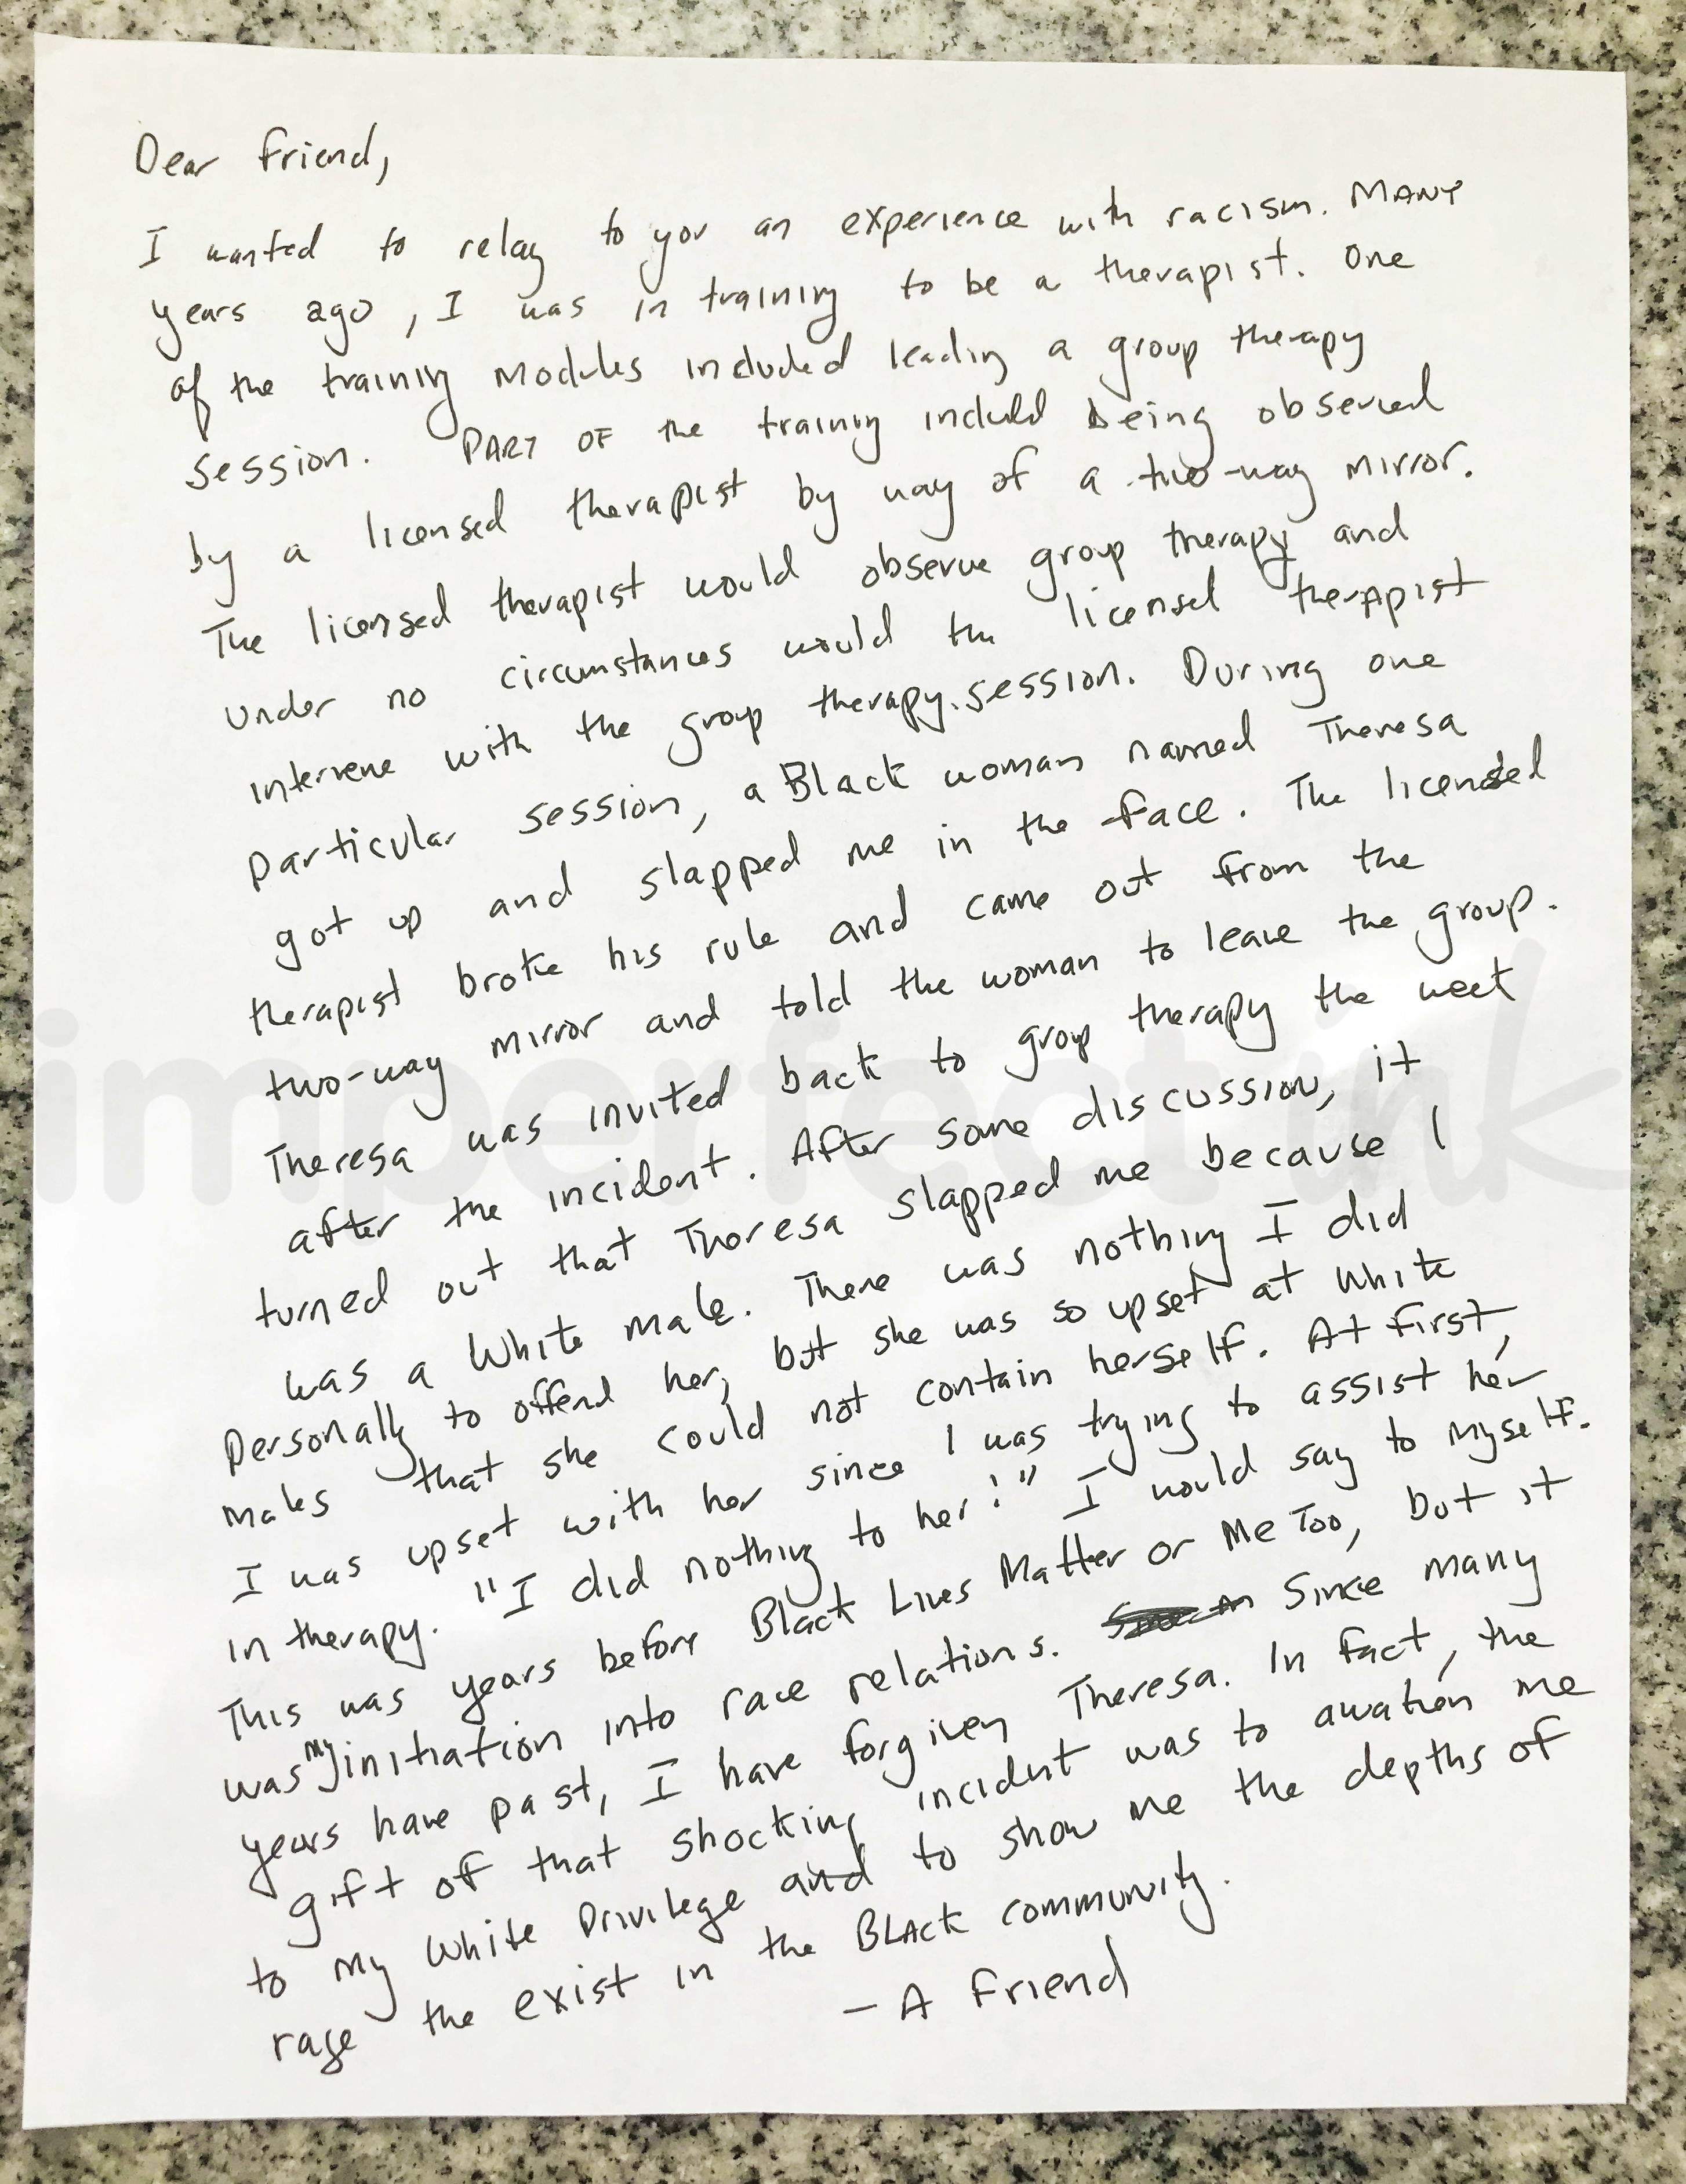 Dear Friend,
I wanted to relay to you an experience with racism. MANY
years ago, I was in training to be a therapist. One
of the training modules included leading a group therapy
session. PART OF the training includd being observed
by a licensed therapist by way of a two-way mirror.
The licensed therapist would observe group therapy and
under no circumstances would the licensed therapist
intervene with the group therapy session. During one
particular session, a Black woman named Theresa
got up and slapped me in the face. The licensed
therapist broke his rule and came out from the
two-way mirror and told the woman to leave the group.
Theresa was invited back to group therapy the week
after the incident. After some discussion, it
turned out that Theresa slapped me because I
was a White male. There was nothing I did
personally to offend her, but she was so upset at White
males that she could not contain herself. At first,
I was upset with her since I was trying to assist her
in therapy. "I did nothing to her!" I would say to myself.
This was years before Black Lives Matter or Me Too, but it
was my initiation into race relations. Since many
years have past, I have forgiven Theresa. In fact, the
gift of that shocking incident was to awaken me
to my White Privilege and to show me the depths of
rage the exist in the BLACK community.
- A Friend
imperfect ink